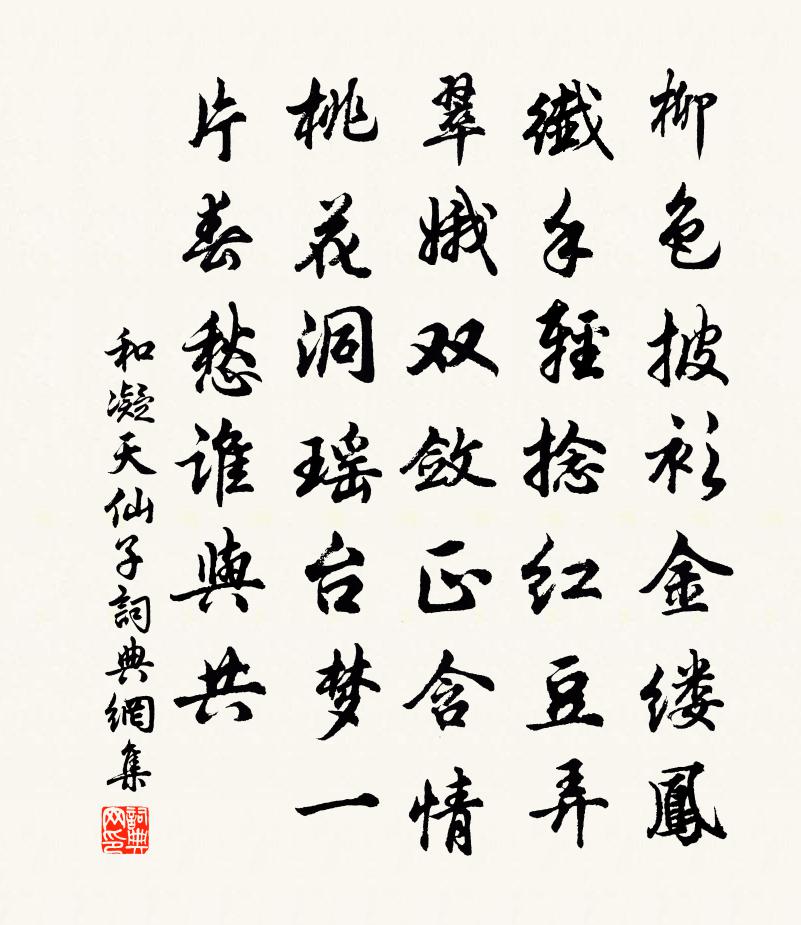 柳色披衫金缕鳳
纖手輕捻红豆弄
翠娥双敛正含情
桃花洞瑶台梦一
片春愁誰與共
和凝天仙子詞典網集
詞典网印